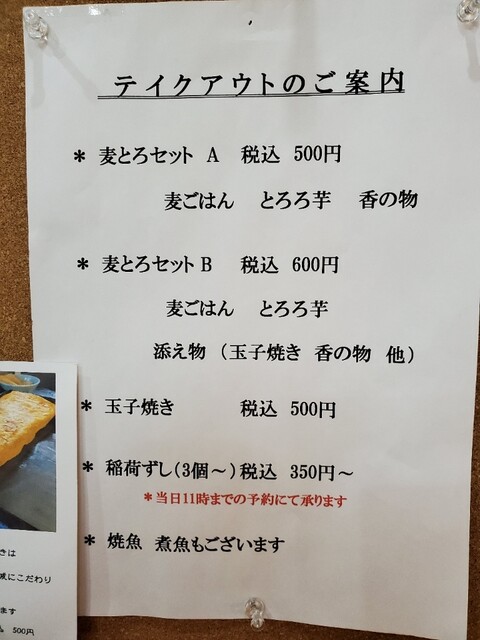 テイクアウトのご案内
* 麦とろセット A 税込 500円
麦ごはん とろろ芋 香の物
* 麦とろセット B 税込 600円
麦ごはん とろろ芋
添え物 (玉子焼き 香の物 他)
* 玉子焼き 税込 500円
* 稲荷ずし(3個～) 税込 350円～
*当日11時までの予約にて承ります
* 焼魚 煮魚もございます
きは
にこだわり
ます
500円